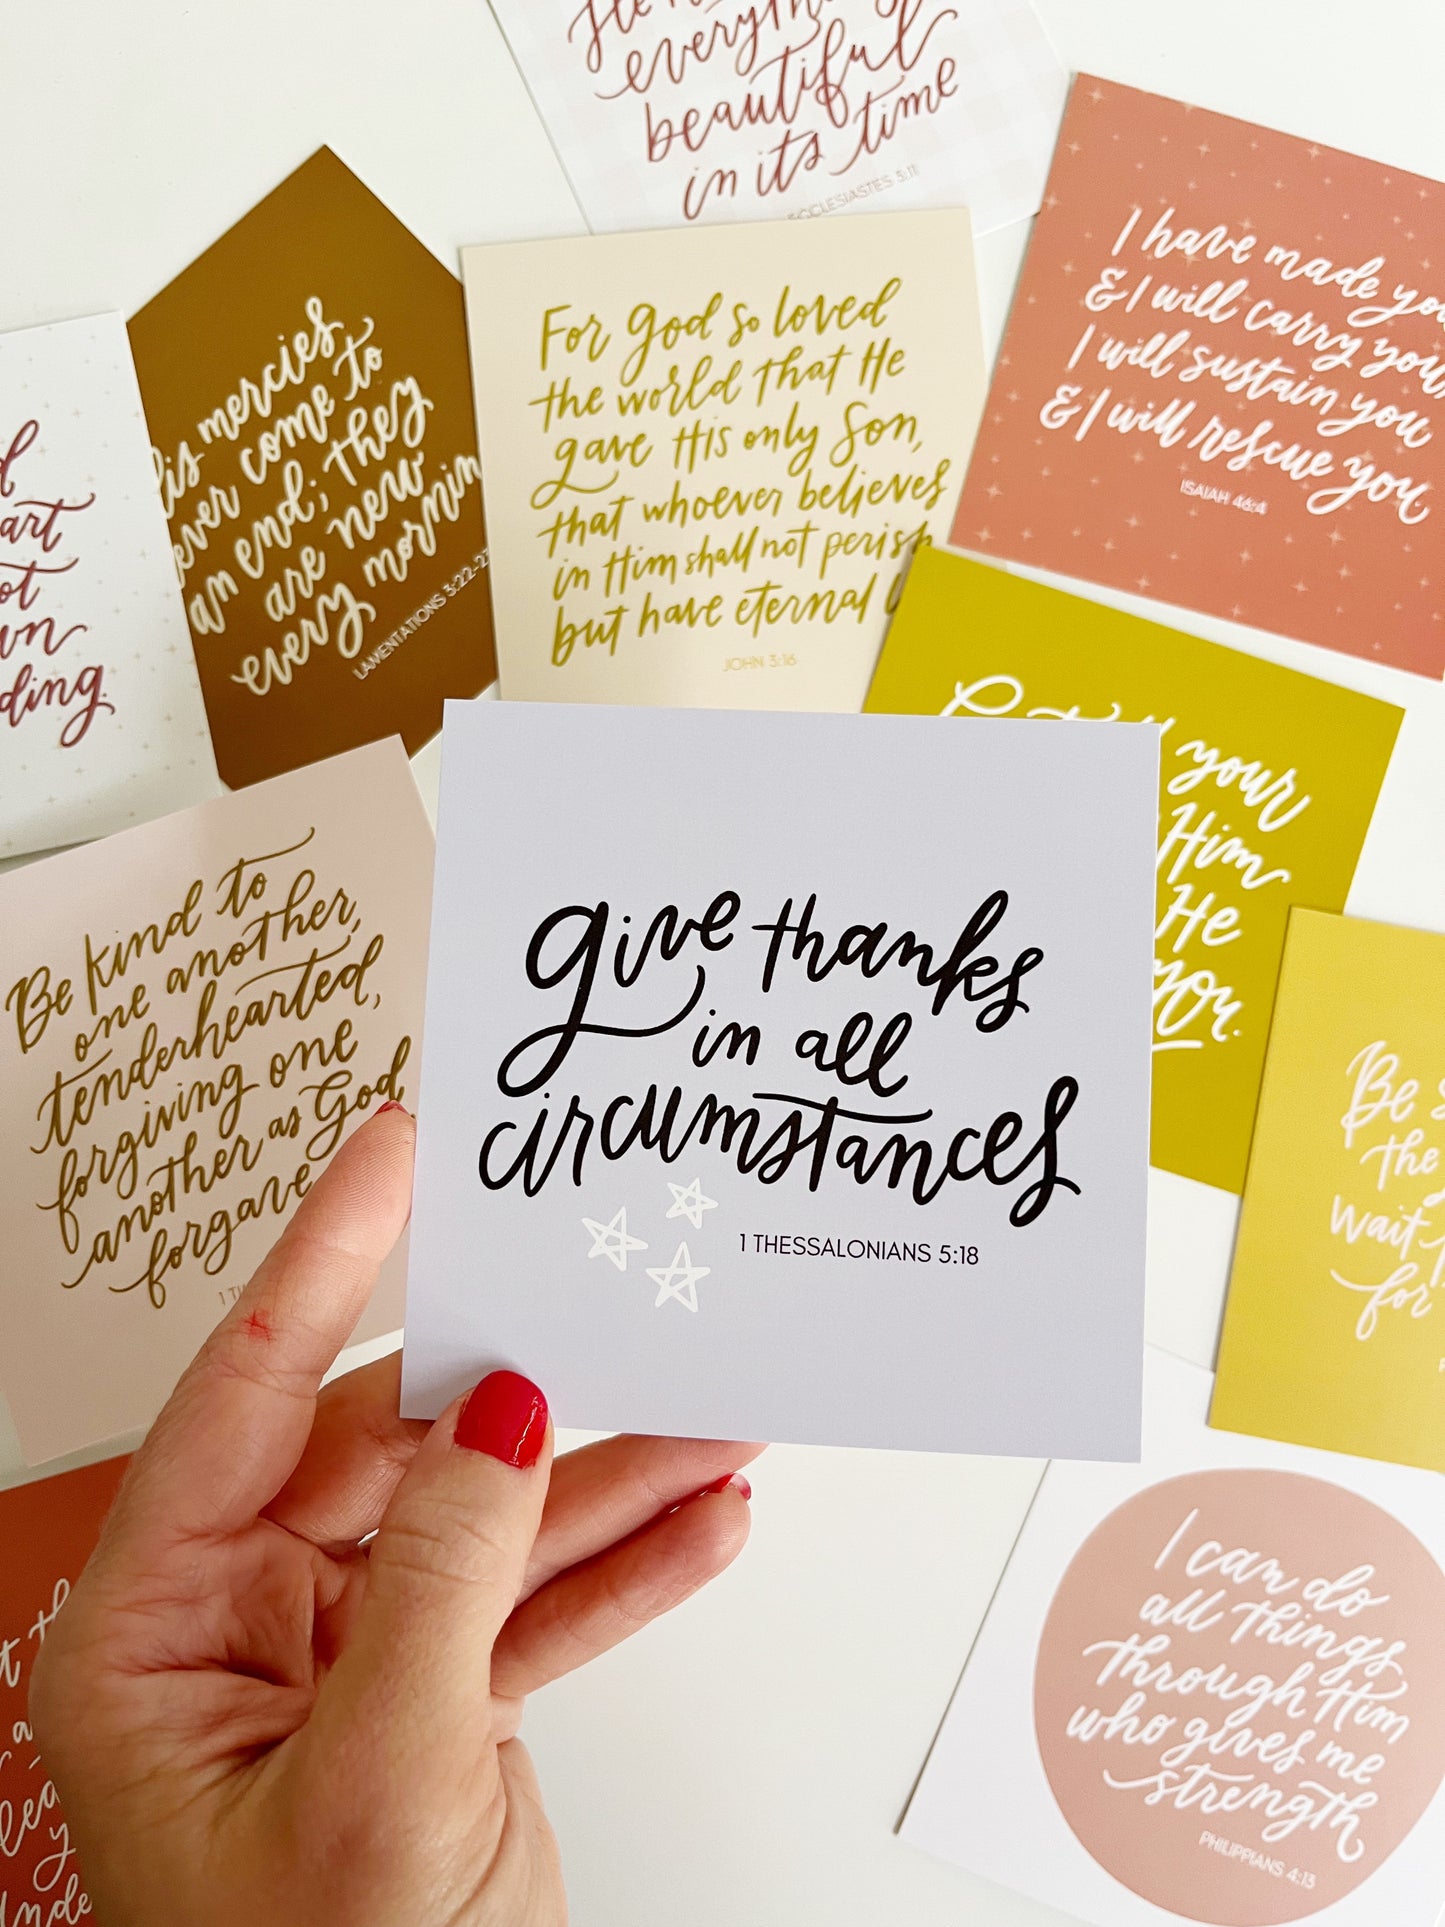 everything
beautiful
in its time
ECCLESIASTES 3:11
I have made you
& I will carry you,
I will sustain you
& I will rescue you
ISAIAH 46:4
mercies
come to
an end; they
are new
every
LAMENTATIONS 3:22-23
For God so loved
the world that He
gave His only Son,
that whoever believes
in Him shall not perish
but have eternal
JOHN 3:16
your
Him
He
you.
Be kind to
one another,
tenderhearted,
forgiving one
another as God
forgave
give thanks
in all
circumstances
1 THESSALONIANS 5:18
Be
the
wait
for
I can do
all things
through Him
who gives me
strength
PHILIPPIANS 4:13